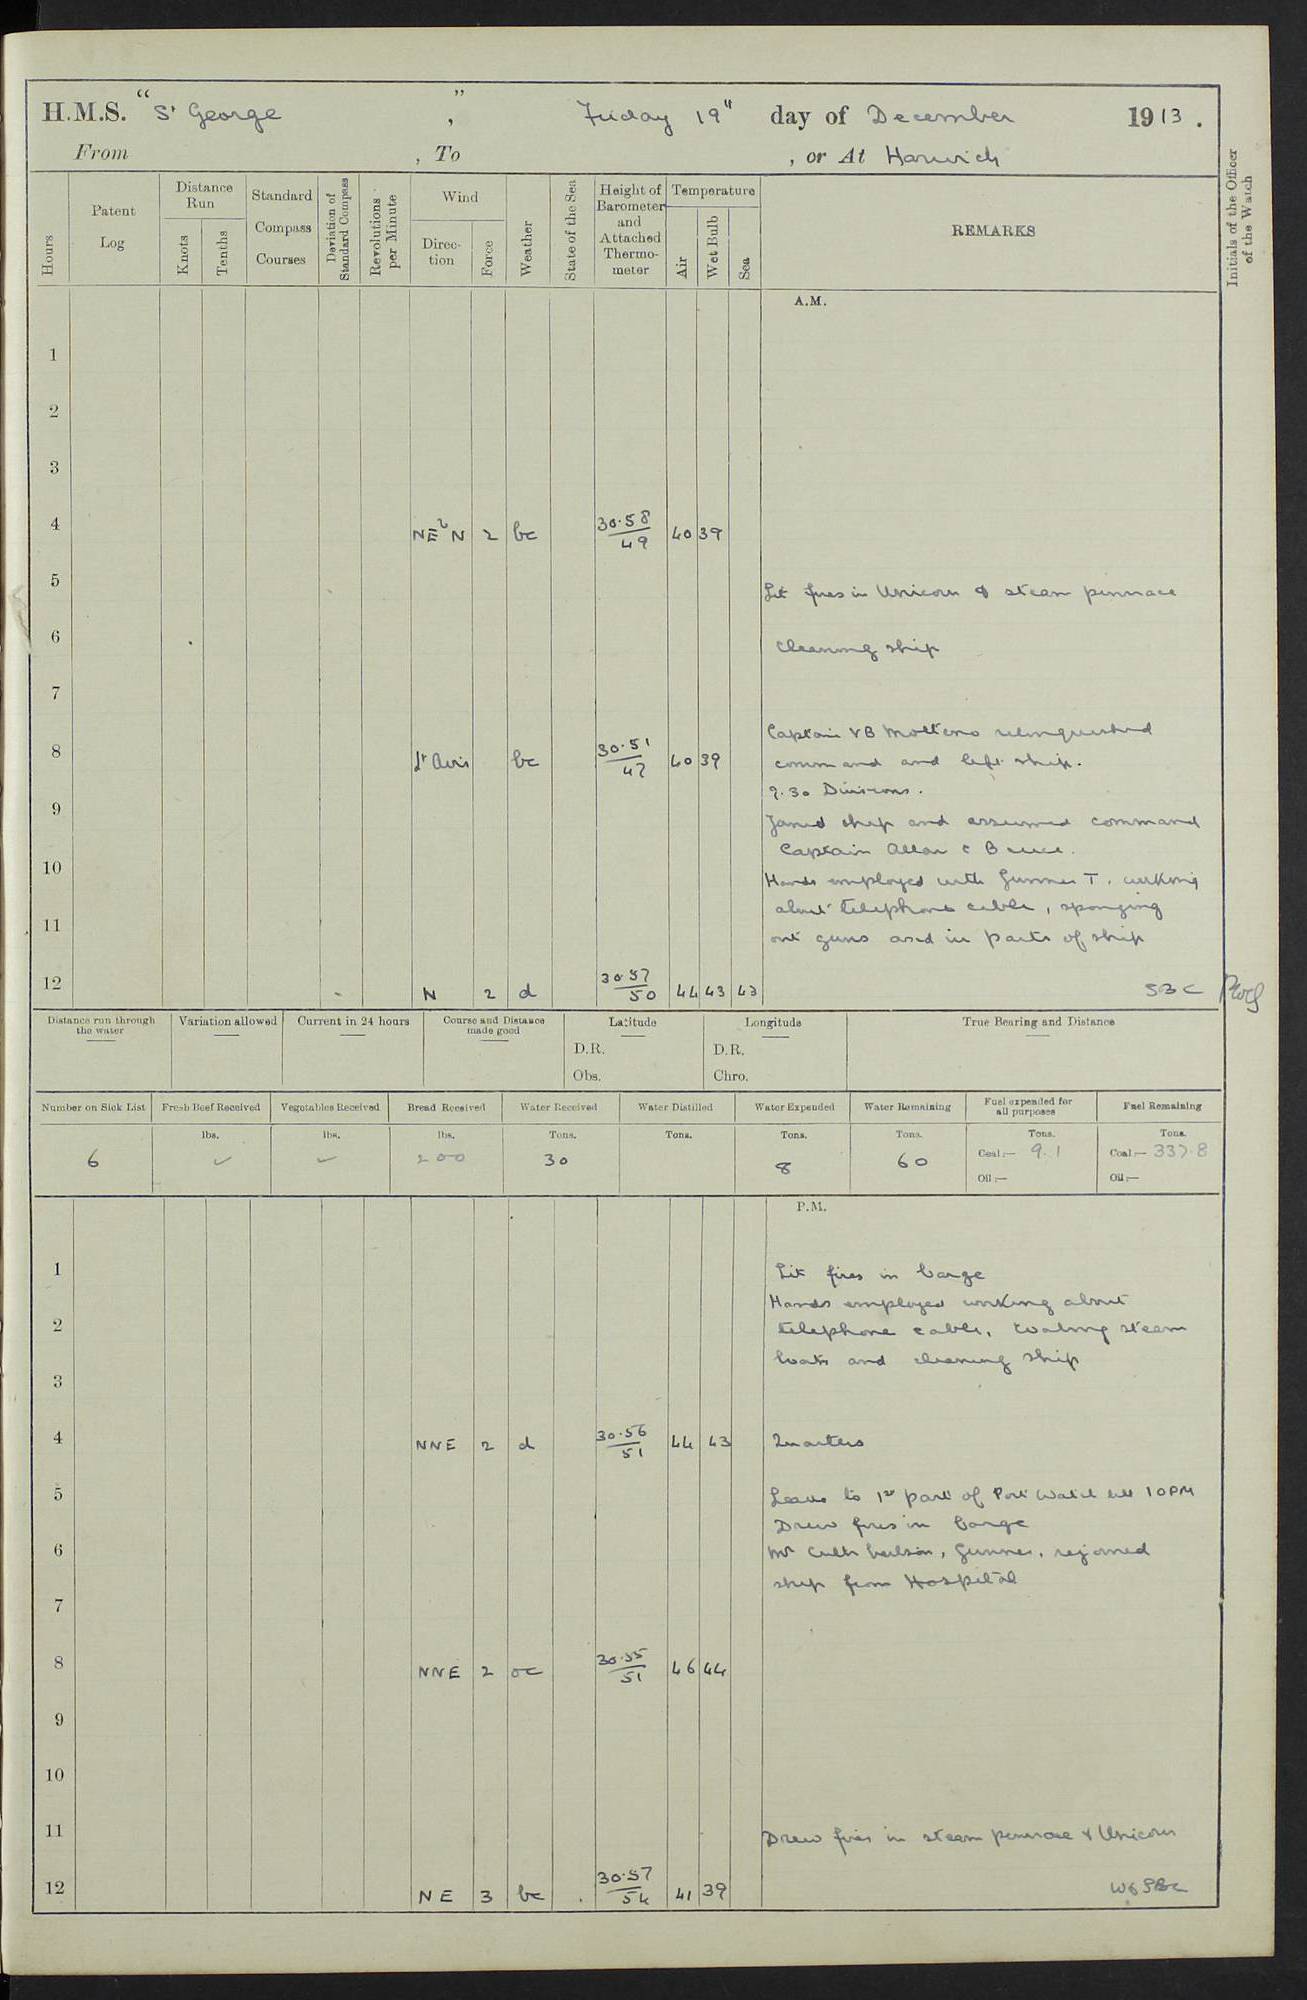 H.M.S. "St George", Friday 19" day of December 1913.
From , To , or At Harwich
Hours
Patent Log
Distance Run
Knots
Tenths
Standard Compass Courses
Deviation of Standard Compass
Revolutions per Minute
Wind
Direction
Force
Weather
State of the Sea
Height of Barometer and Attached Thermometer
Temperature
Air
Wet Bulb
Sea
REMARKS
Initials of the Officer of the Watch
A.M.
1
2
3
4 NEbN 2 bc 30.58/49 40 39
5 Lit fires in Unicorn & steam pinnace
6 Cleaning ship
7
Captain VB Molteno relinquished
8 Lt Airs bc 30.51/47 40 39 command and left ship.
9.30 Divisions.
9 Joined ship and assumed command
Captain Allan C Bruce.
10 Hands employed with Gunner T. working
about telephone cable, sponging
11 out guns and in parts of ship
12 N 2 d 30.57/50 44 43 43 SBC
Distance run through the water
Variation allowed
Current in 24 hours
Course and Distance made good
Latitude
D.R.
Obs.
Longitude
D.R.
Chro.
True Bearing and Distance
Number on Sick List
Fresh Beef Received
Vegetables Received
Bread Received
Water Received
Water Distilled
Water Expended
Water Remaining
Fuel expended for all purposes
Fuel Remaining
lbs. lbs. lbs. Tons. Tons. Tons. Tons. Tons. Tons.
6 ✓ ✓ 200 30 8 60 Coal:— 9.1 Coal:— 337.8
Oil:— Oil:—
P.M.
1 Lit fires in barge
Hands employed working about
2 telephone cable, coaling steam
boats and cleaning ship
3
4 NNE 2 d 30.56/51 44 43 Quarters
5 Leave to 1st part of Port Watch till 10PM
Drew fires in barge
6 Mr Cuthbertson, Gunner, rejoined
ship from Hospital
7
8 NNE 2 oc 30.55/51 46 44
9
10
11 Drew fires in steam pinnace & Unicorn
12 NE 3 bc 30.57/54 41 39